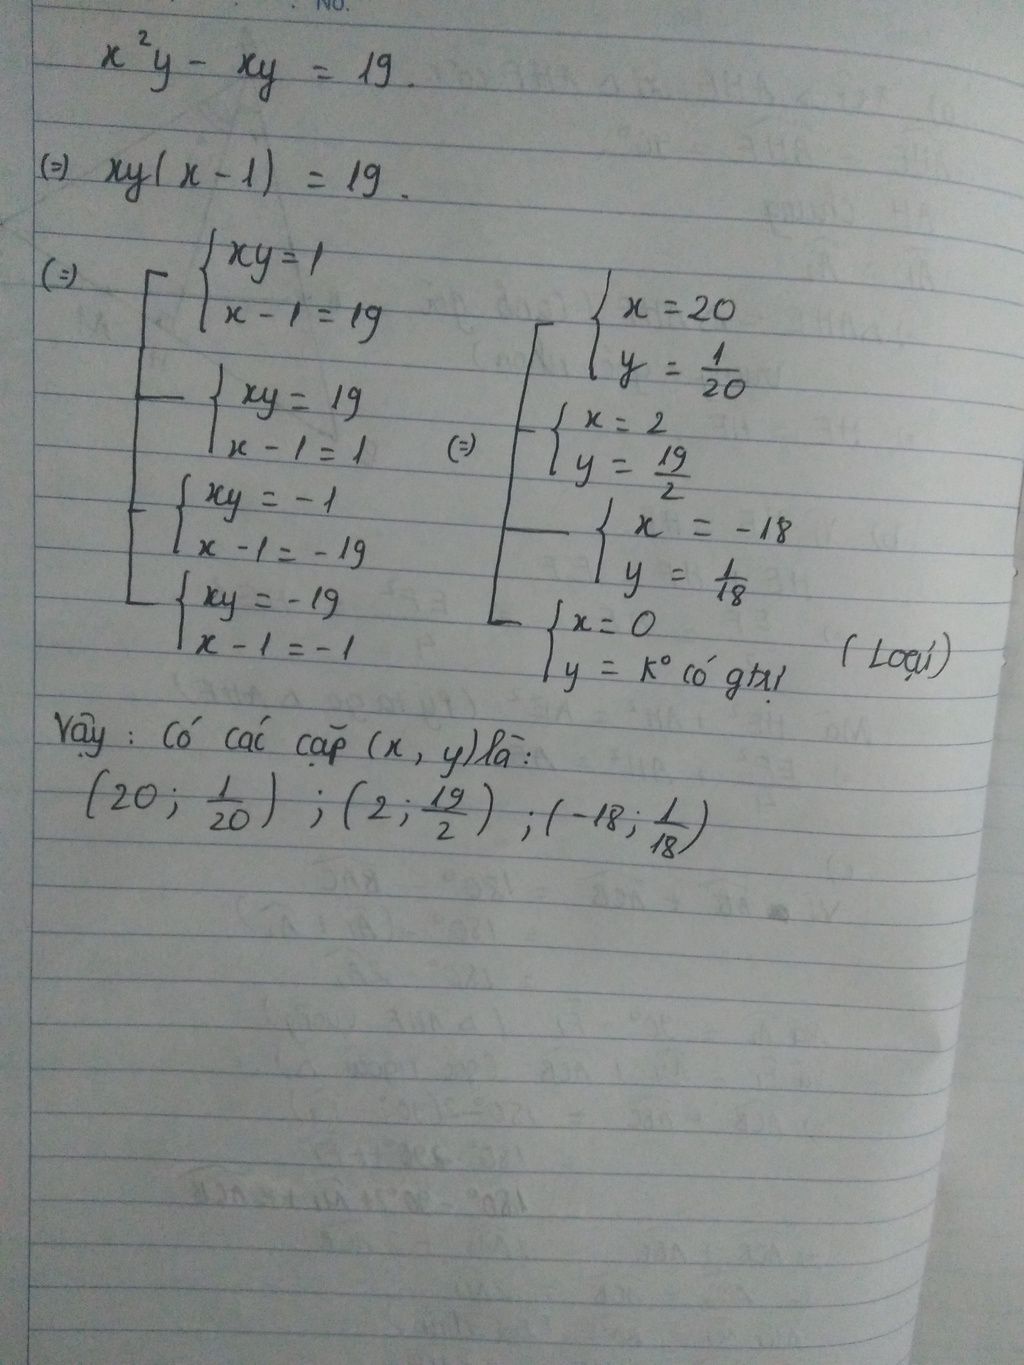 No.
x²y - xy = 19.
(=) xy(x - 1) = 19.
(=) xy = 1
x - 1 = 19
xy = 19
x - 1 = 1
xy = -1
x - 1 = -19
xy = -19
x - 1 = -1
(=) x = 20
y = 1/20
x = 2
y = 19/2
x = -18
y = 1/18
x = 0
y = K° có gtrị (Loại)
Vậy : Có các cặp (x, y) là:
(20; 1/20) ; (2; 19/2) ; (-18; 1/18)